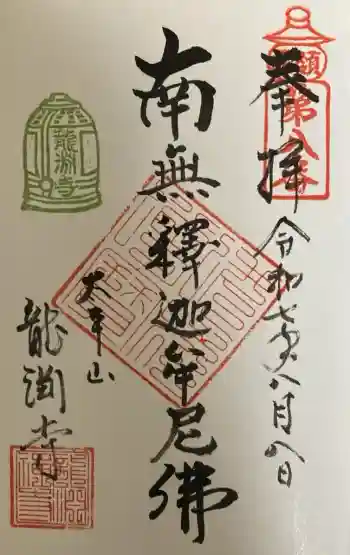 奉拝
令和七年八月八日
第八番
南無釋迦牟尼佛
太平山
龍淵寺
龍淵寺